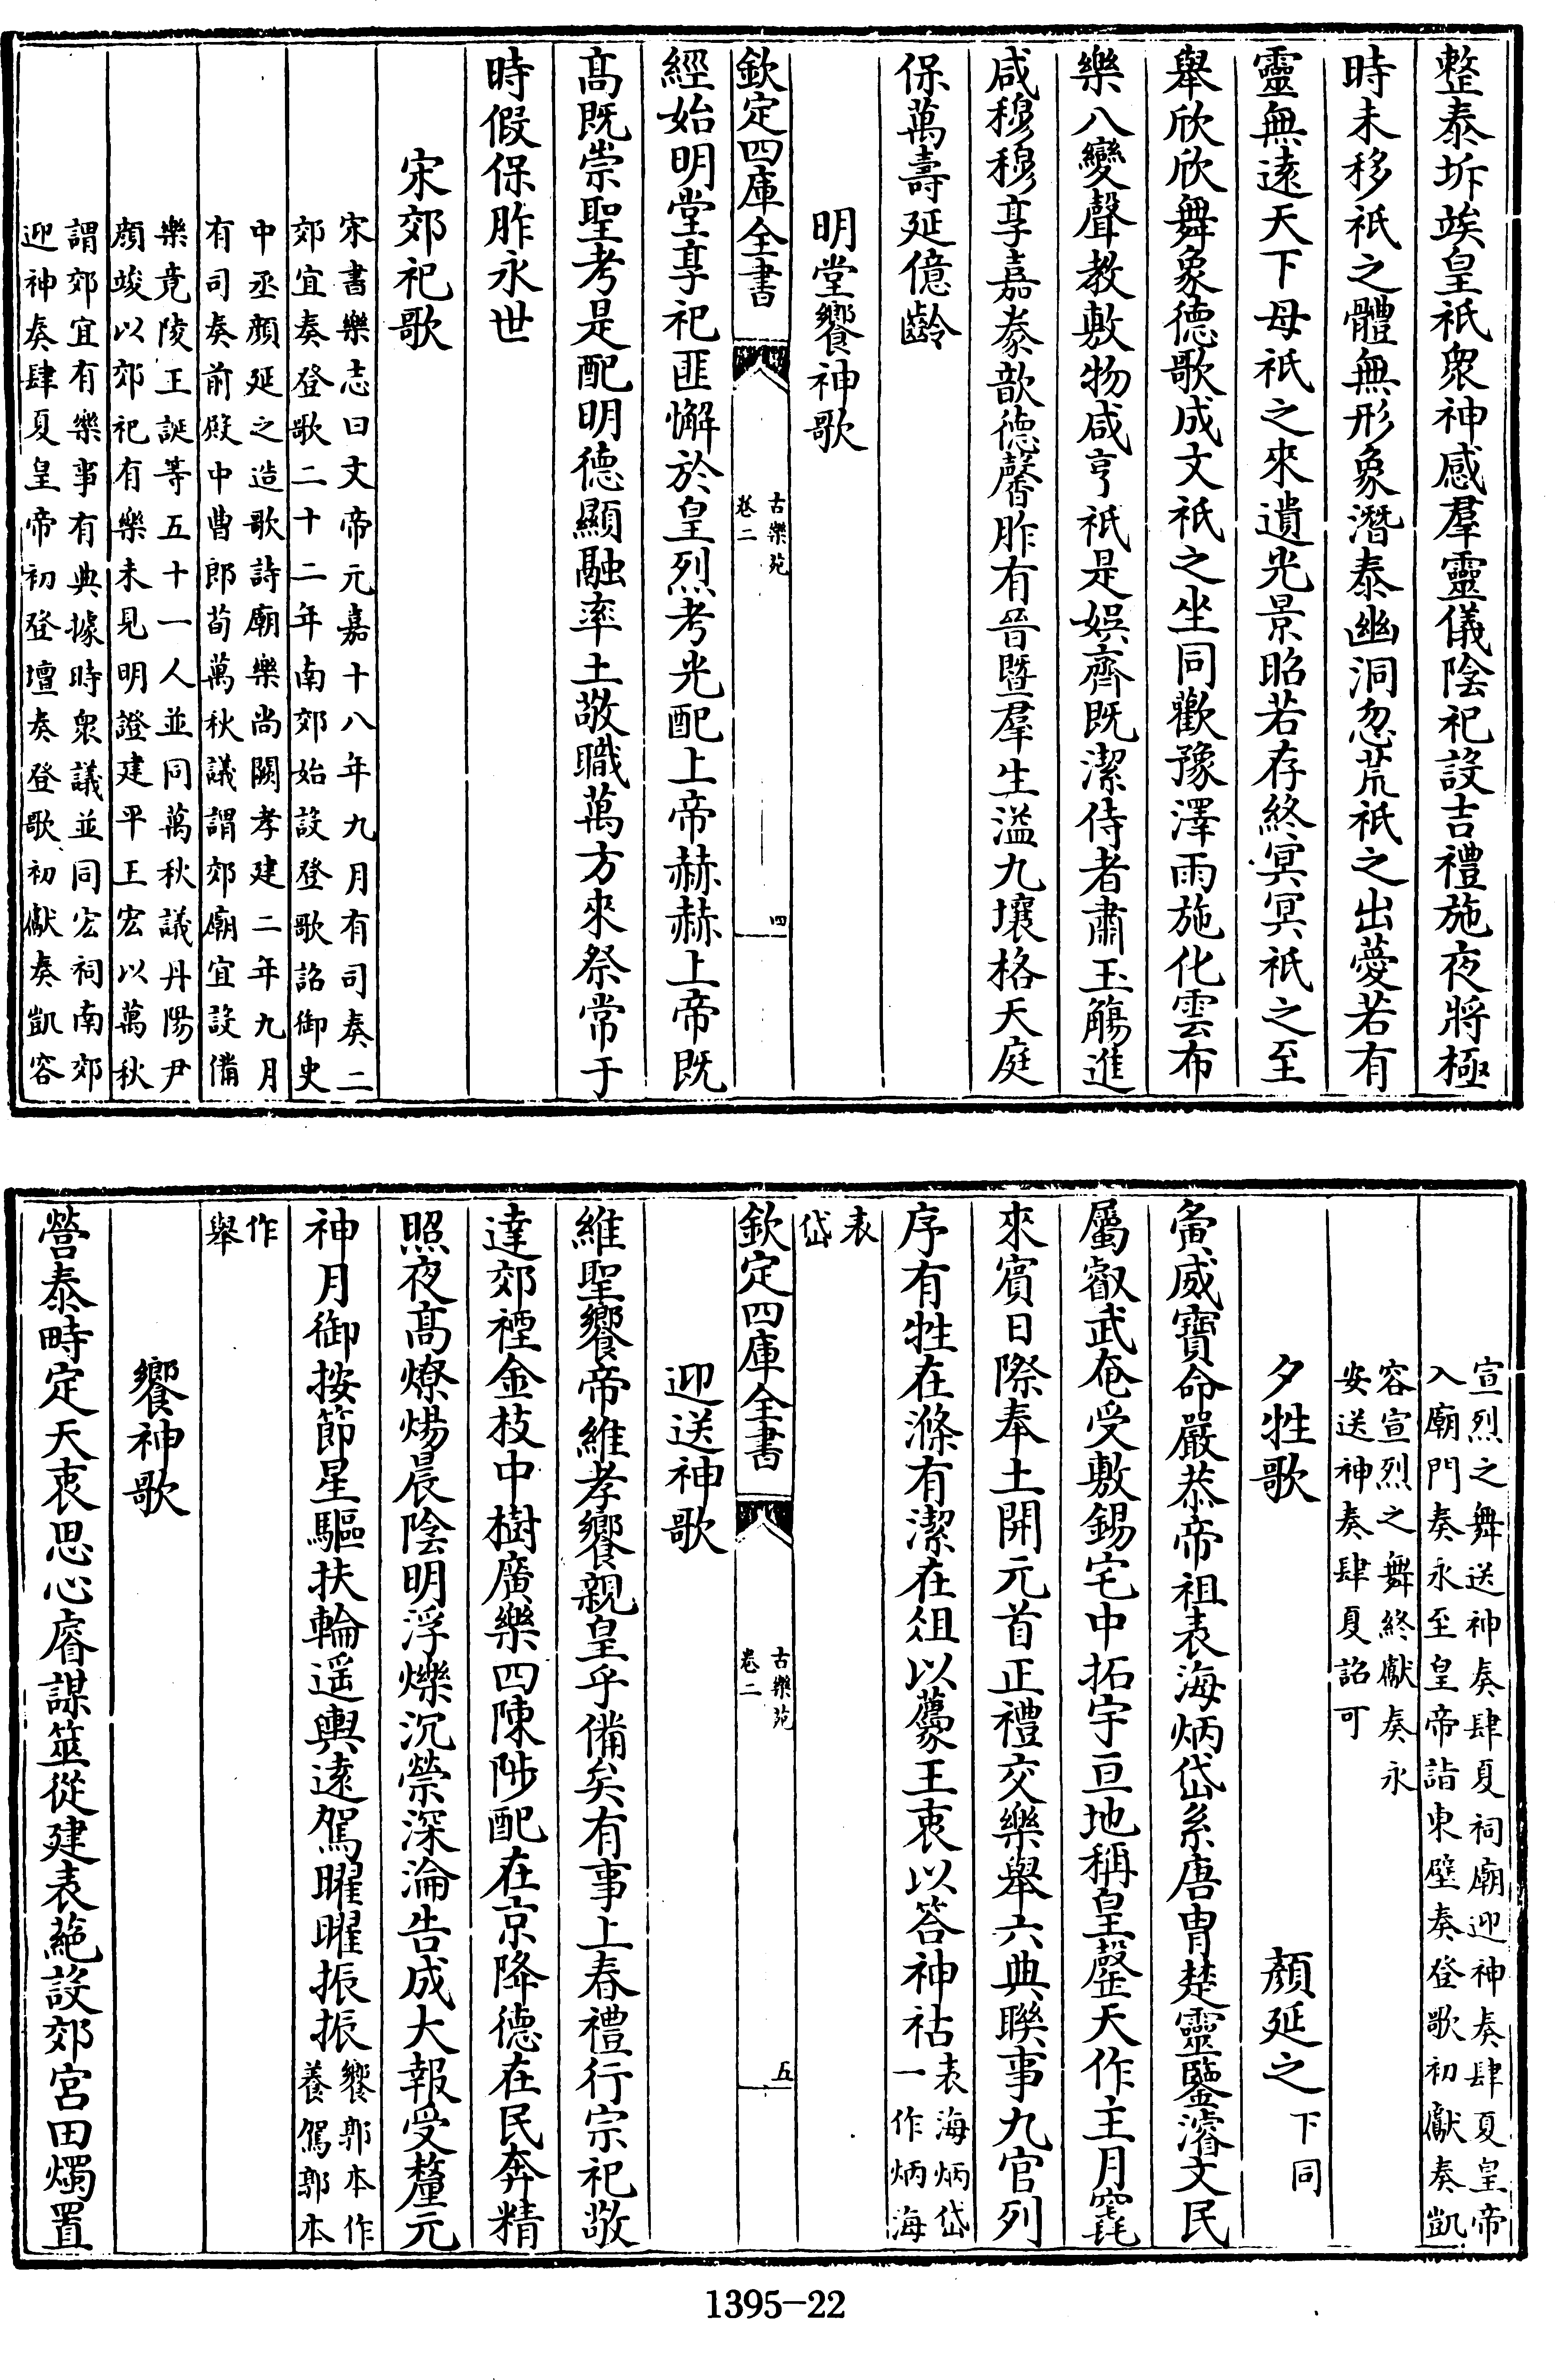 整泰坼竢皇祇衆神感羣靈儀陰祀設吉禮施夜將極
時未移祇之體無形象潛泰幽洞忽荒祇之出薆若有
靈無逺天下母祇之來遺光景昭若存終冥冥祇之至
舉欣欣舞象德歌成文祇之坐同歡豫澤雨施化雲布
樂八變聲教敷物咸亨祇是娯齊既潔侍者肅玉觴進
咸穆穆享嘉豢歆德馨胙有晉暨羣生溢九壤格天庭
保萬壽延億齡
明堂饗神歌
欽定四庫全書
古樂苑
卷二
四
經始明堂享祀匪懈於皇烈考光配上帝赫赫上帝既
髙既崇聖考是配明德顯融率土敬職萬方來祭常于
時假保胙永世
宋郊祀歌
宋書樂志曰文帝元嘉十八年九月有司奏二
郊宜奏登歌二十二年南郊始設登歌詔御史
中丞顔延之造歌詩廟樂尚闕孝建二年九月
有司奏前殿中曹郎荀萬秋議謂郊廟宜設備
樂竟陵王誕等五十一人並同萬秋議丹陽尹
顔竣以郊祀有樂未見明證建平王宏以萬秋
謂郊宜有樂事有典據時衆議並同宏祠南郊
迎神奏肆夏皇帝初登壇奏登歌初獻奏凱容
宣烈之舞送神奏肆夏祠廟迎神奏肆夏皇帝
入廟門奏永至皇帝詣東壁奏登歌初獻奏凱
容宣烈之舞終獻奏永
安送神奏肆夏詔可
夕牲歌 顔延之 下同
夤威寳命嚴恭帝祖表海炳岱系唐胄楚靈鑒濬文民
屬叡武奄受敷錫宅中拓宇亘地稱皇罄天作主月竁
來賓日際奉土開元首正禮交樂舉六典聯事九官列
序有牲在滌有潔在俎以薦王衷以答神祜 表海炳岱
一作炳海
表
岱
欽定四庫全書
古樂苑
卷二
五
迎送神歌
維聖饗帝維孝饗親皇乎備矣有事上春禮行宗祀敬
達郊禋金枝中樹廣樂四陳陟配在京降德在民奔精
照夜髙燎煬晨陰明浮爍沉禜深淪告成大報受釐元
神月御按節星驅扶輪遥輿逺駕曜曜振振 饗郭本作
養駕郭本
作
舉
饗神歌
營泰畤定天衷思心睿謀筮從建表蕝設郊宫田燭置
1395-22